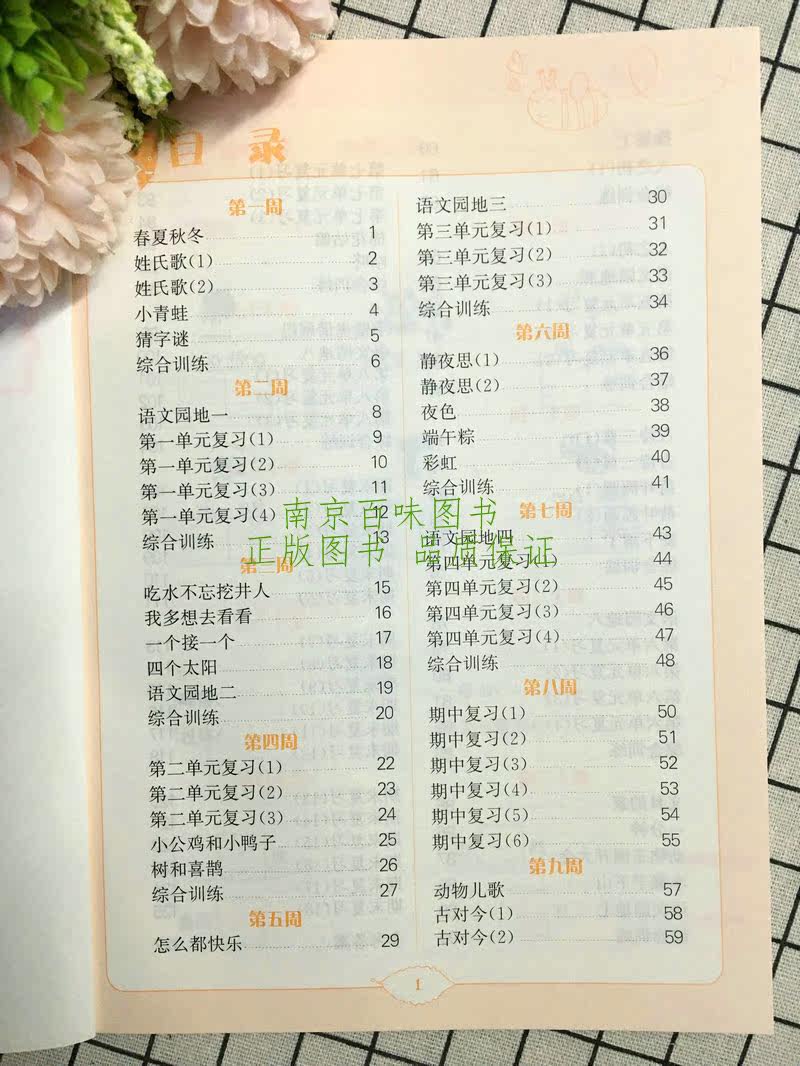 目 录
第一周
春夏秋冬 1
姓氏歌(1) 2
姓氏歌(2) 3
小青蛙 4
猜字谜 5
综合训练 6
第二周
语文园地一 8
第一单元复习(1) 9
第一单元复习(2) 10
第一单元复习(3) 11
第一单元复习(4) 12
综合训练 13
第三周
吃水不忘挖井人 15
我多想去看看 16
一个接一个 17
四个太阳 18
语文园地二 19
综合训练 20
第四周
第二单元复习(1) 22
第二单元复习(2) 23
第二单元复习(3) 24
小公鸡和小鸭子 25
树和喜鹊 26
综合训练 27
第五周
怎么都快乐 29
语文园地三 30
第三单元复习(1) 31
第三单元复习(2) 32
第三单元复习(3) 33
综合训练 34
第六周
静夜思(1) 36
静夜思(2) 37
夜色 38
端午粽 39
彩虹 40
综合训练 41
第七周
语文园地四 43
第四单元复习(1) 44
第四单元复习(2) 45
第四单元复习(3) 46
第四单元复习(4) 47
综合训练 48
第八周
期中复习(1) 50
期中复习(2) 51
期中复习(3) 52
期中复习(4) 53
期中复习(5) 54
期中复习(6) 55
第九周
动物儿歌 57
古对今(1) 58
古对今(2) 59
1
南京百味图书
正版图书 品质保证